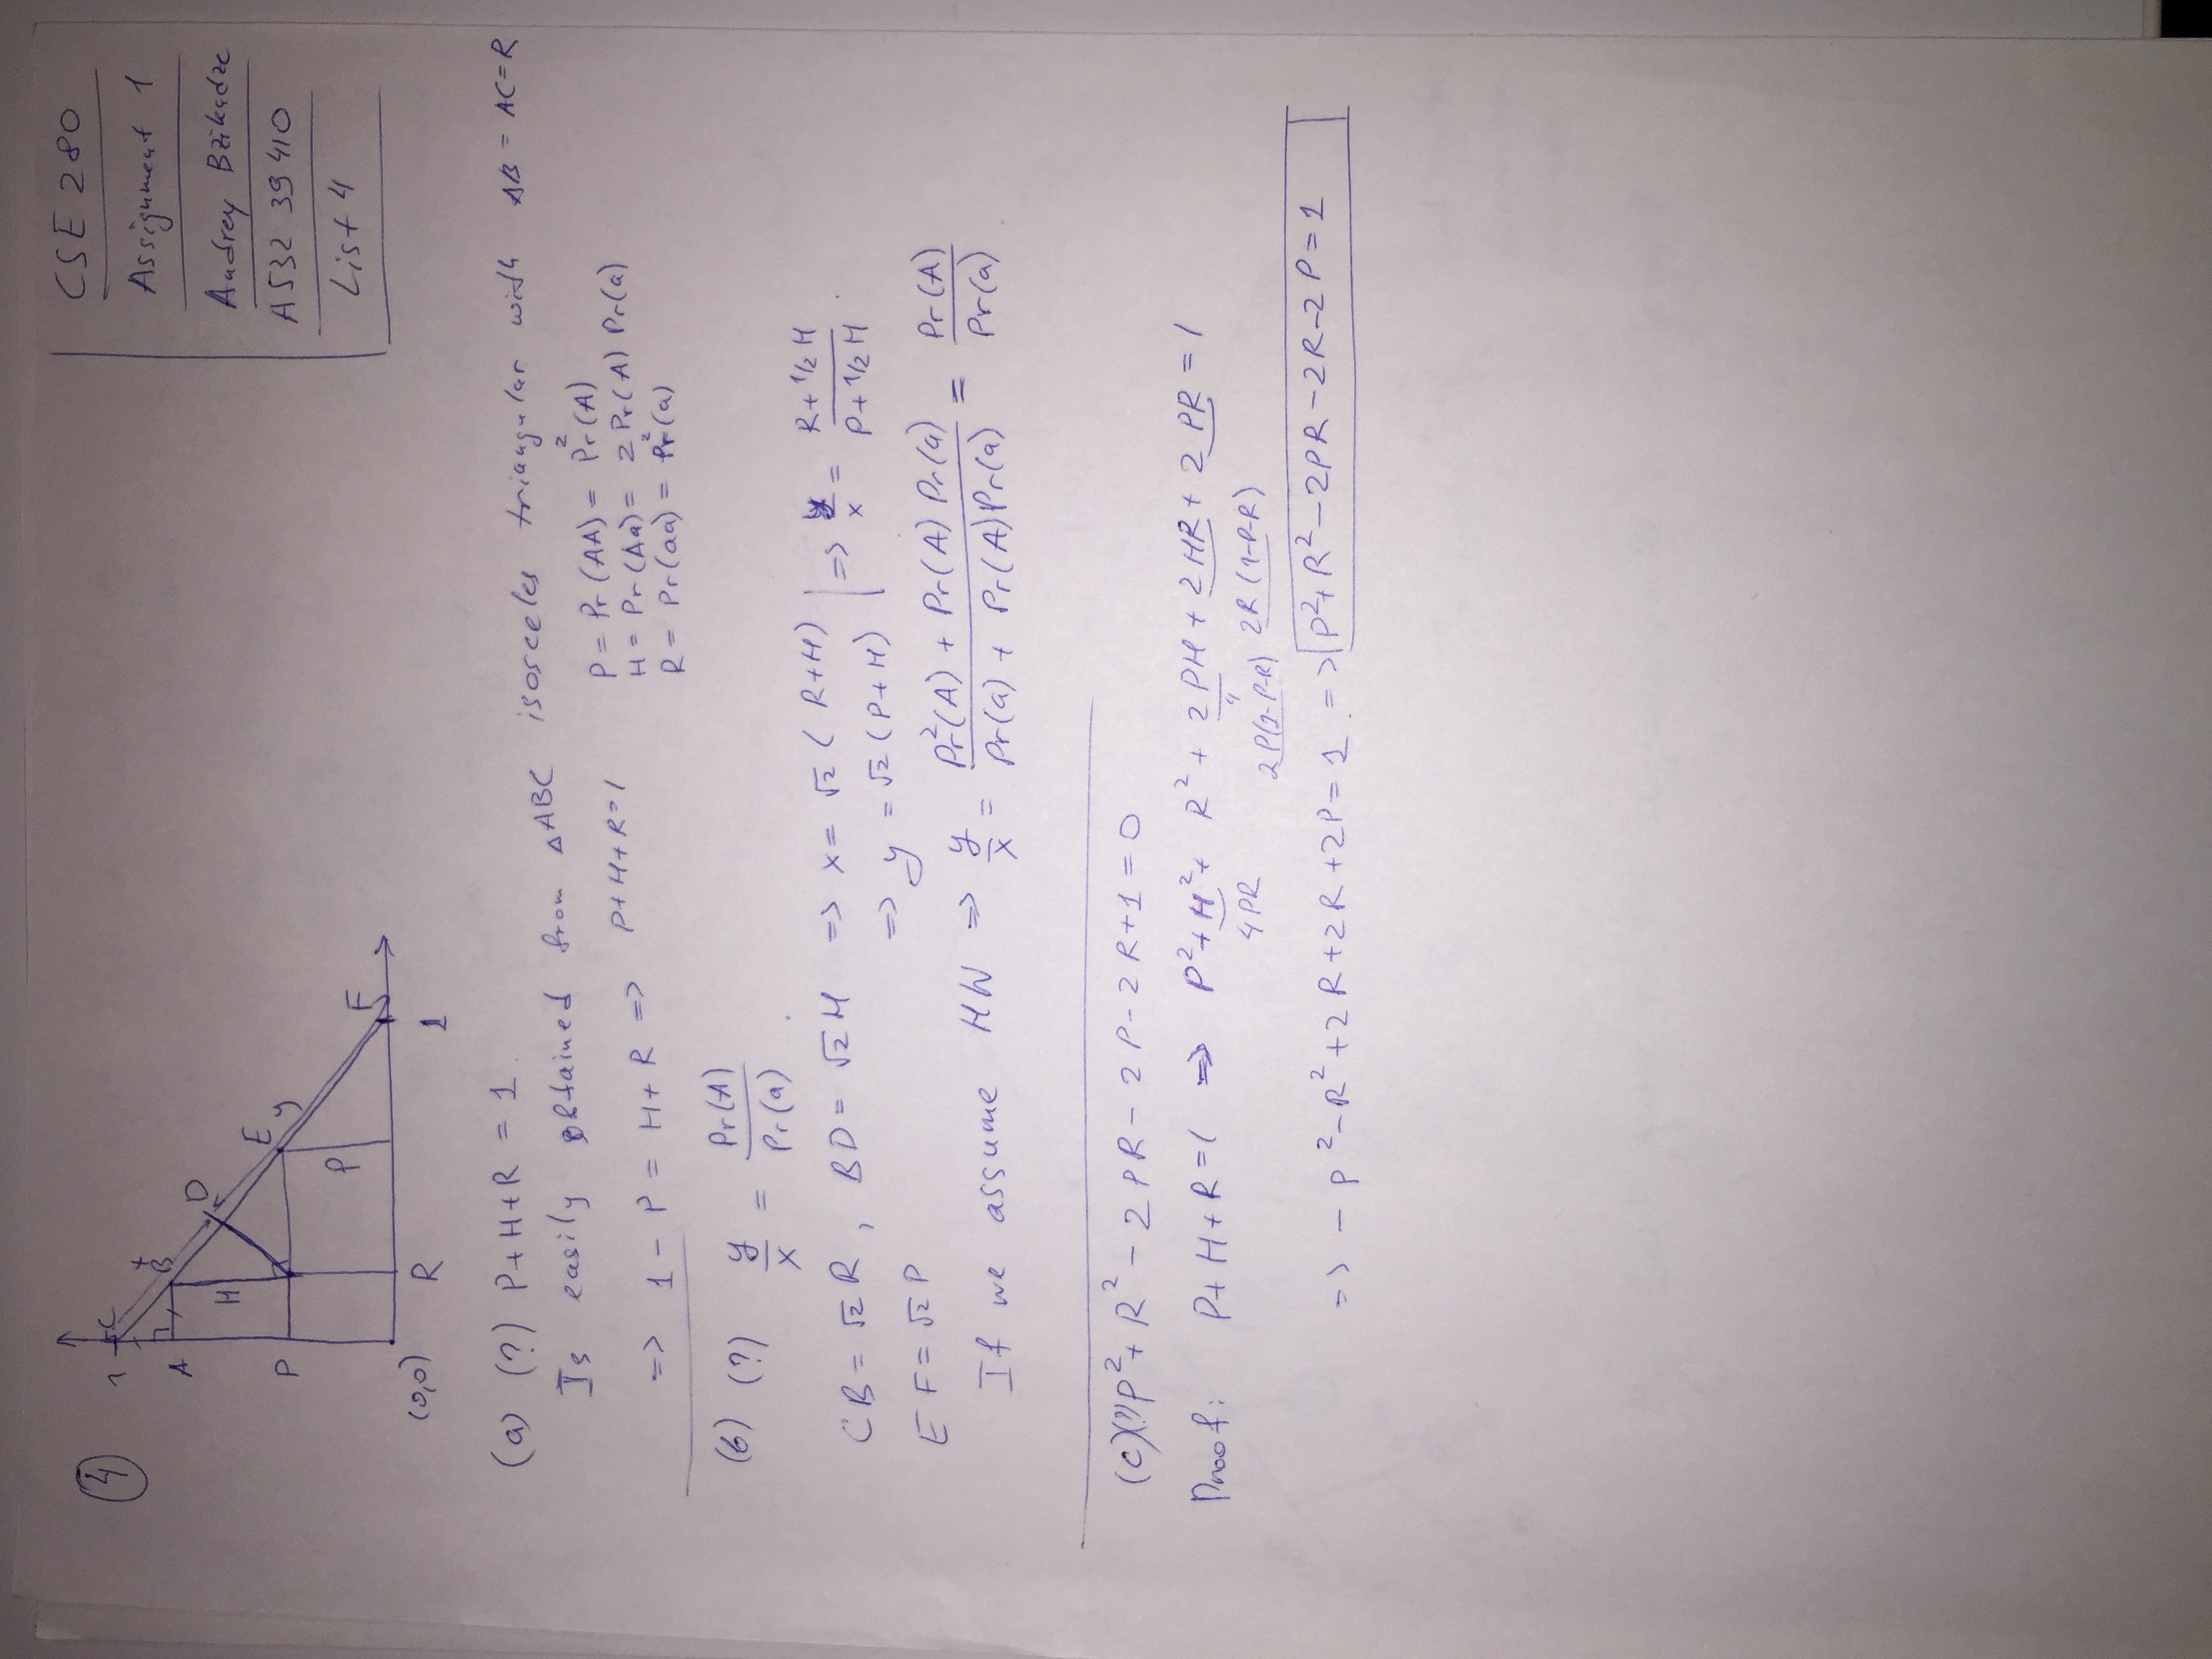 CSE 280
Assignment 1
Andrey Bzikadze
A532 39410
List 4
4
1 C
x
A B
D
H
E
P y
P
F
(0,0) R 1
(a) (?) P+H+R = 1.
Is easily obtained from △ABC isosceles triangular with AB = AC = R
=> 1 - P = H + R => P+H+R=1
P = Pr(AA) = Pr²(A)
H = Pr(Aa) = 2Pr(A) Pr(a)
R = Pr(aa) = Pr²(a)
(b) (?) y/x = Pr(A)/Pr(a).
CB = √2 R, BD = √2 H => x = √2 (R+H) | => y/x = (R+1/2 H)/(P+1/2 H).
=> y = √2 (P+H)
EF = √2 P
If we assume HW => y/x = (Pr²(A) + Pr(A) Pr(a))/(Pr(a) + Pr(A)Pr(a)) = Pr(A)/Pr(a).
(c)(?) P² + R² - 2PR - 2P - 2R + 1 = 0
Proof: P+H+R=1 => P² + H² + R² + 2PH + 2HR + 2PR = 1
4PR 2P(1-P-R) 2R(1-P-R)
=> -P² - R² + 2R + 2R + 2P = 1. => P² + R² - 2PR - 2R - 2P = 1